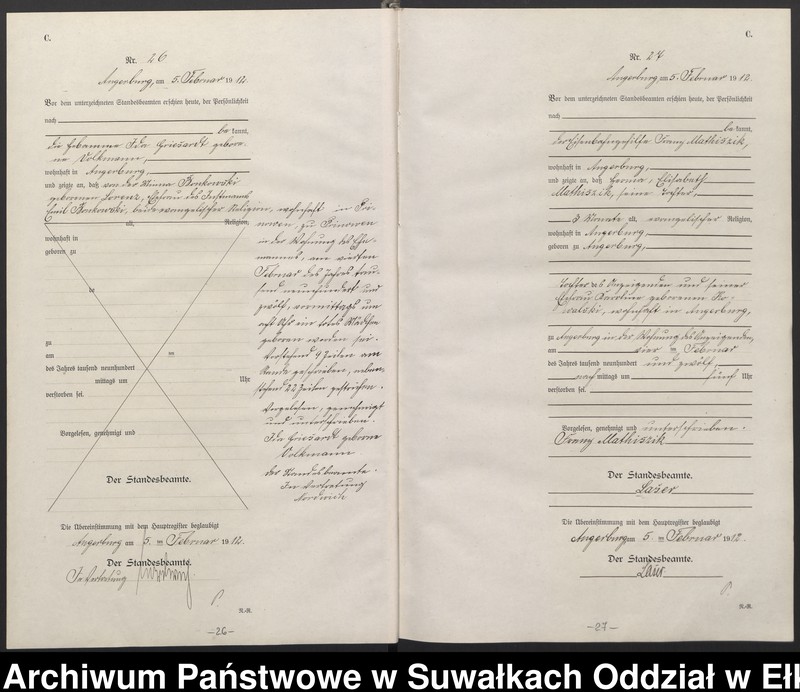 C.
Nr. 26
Angerburg, am 5. Februar 1912.
Vor dem unterzeichneten Standesbeamten erschien heute, der Persönlichkeit
nach
be kannt,
die Hebamme Ida Griesardt gebore-
ne Volkmann,
wohnhaft in Angerburg
und zeigte an, daß von der Minna Bonkowski
geborenen Lorenz, Ehefrau des Instmanns
Emil Bonkowski, beide evangelischer Religion, wohnhaft in
alt, Religion,
wohnhaft in
in der Wohnung des Ehe-
geboren zu
mannes, am vierten
Februar des Jahres tau-
send neunhundert und
zwölf, vormittags um
acht Uhr ein totes Mädchen
geboren worden sei.
zu
am
des Jahres tausend neunhundert
mittags um Uhr
verstorben sei.
Vorstehend 9 Zeilen am
Rande geschrieben, neben-
stehend 22 Zeilen gestrichen.
Vorgelesen, genehmigt und
Vorgelesen, genehmigt
und unterschrieben.
Ida Griesardt geborne
Volkmann.
Der Standesbeamte.
Der Standesbeamte.
In Vertretung
Die Übereinstimmung mit dem Hauptregister beglaubigt
Angerburg am 5. ten Februar 1912.
Der Standesbeamte.
In Vertretung
R.-R.
-26-
C.
Nr. 27
Angerburg, am 5. Februar 1912.
Vor dem unterzeichneten Standesbeamten erschien heute, der Persönlichkeit
nach
be kannt,
der Eisenbahngehilfe Franz Mathiszik,
wohnhaft in Angerburg,
und zeigte an, daß Herma, Elisabeth
Mathiszik, seine Tochter,
8 Monate alt, evangelischer Religion,
wohnhaft in Angerburg,
geboren zu Angerburg,
Tochter des Anzeigenden und seiner
Ehefrau Karoline geborenen Ko-
walski, wohnhaft in Angerburg,
zu Angerburg in der Wohnung des Anzeigenden,
am vier ten Februar
des Jahres tausend neunhundert und zwölf,
nach mittags um fünf Uhr
verstorben sei.
Vorgelesen, genehmigt und unterschrieben.
Franz Mathiszik
Der Standesbeamte.
Laser
Die Übereinstimmung mit dem Hauptregister beglaubigt
Angerburg am 5. ten Februar 1912.
Der Standesbeamte.
Laser
R.-R.
-27-
Archiwum Państwowe w Suwałkach Oddział w Ełk